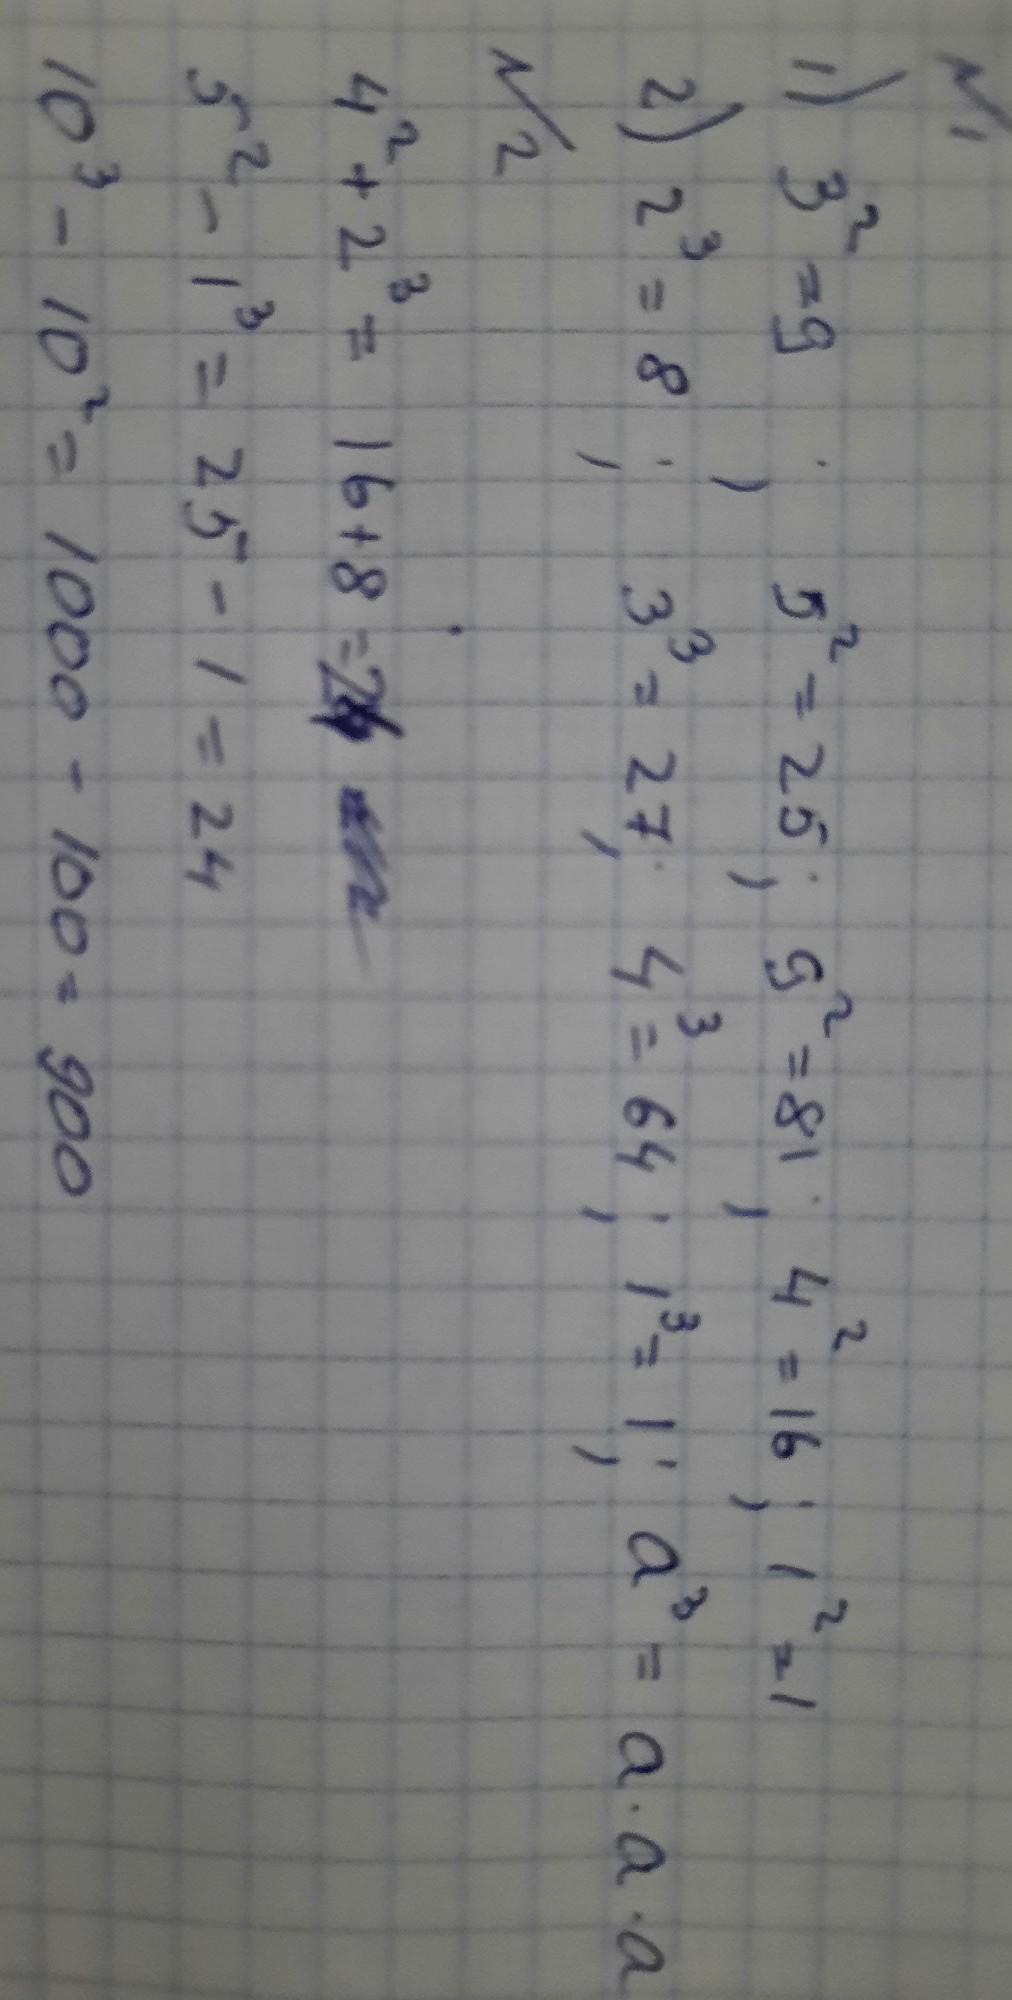 №1
1) 3² = 9 ; 5² = 25 ; 9² = 81 ; 4² = 16 ; 1² = 1
2) 2³ = 8 ; 3³ = 27 ; 4³ = 64 ; 1³ = 1 ; a³ = a · a · a
№2
4² + 2³ = 16 + 8 =
5² - 1³ = 25 - 1 = 24
10³ - 10² = 1000 - 100 = 900